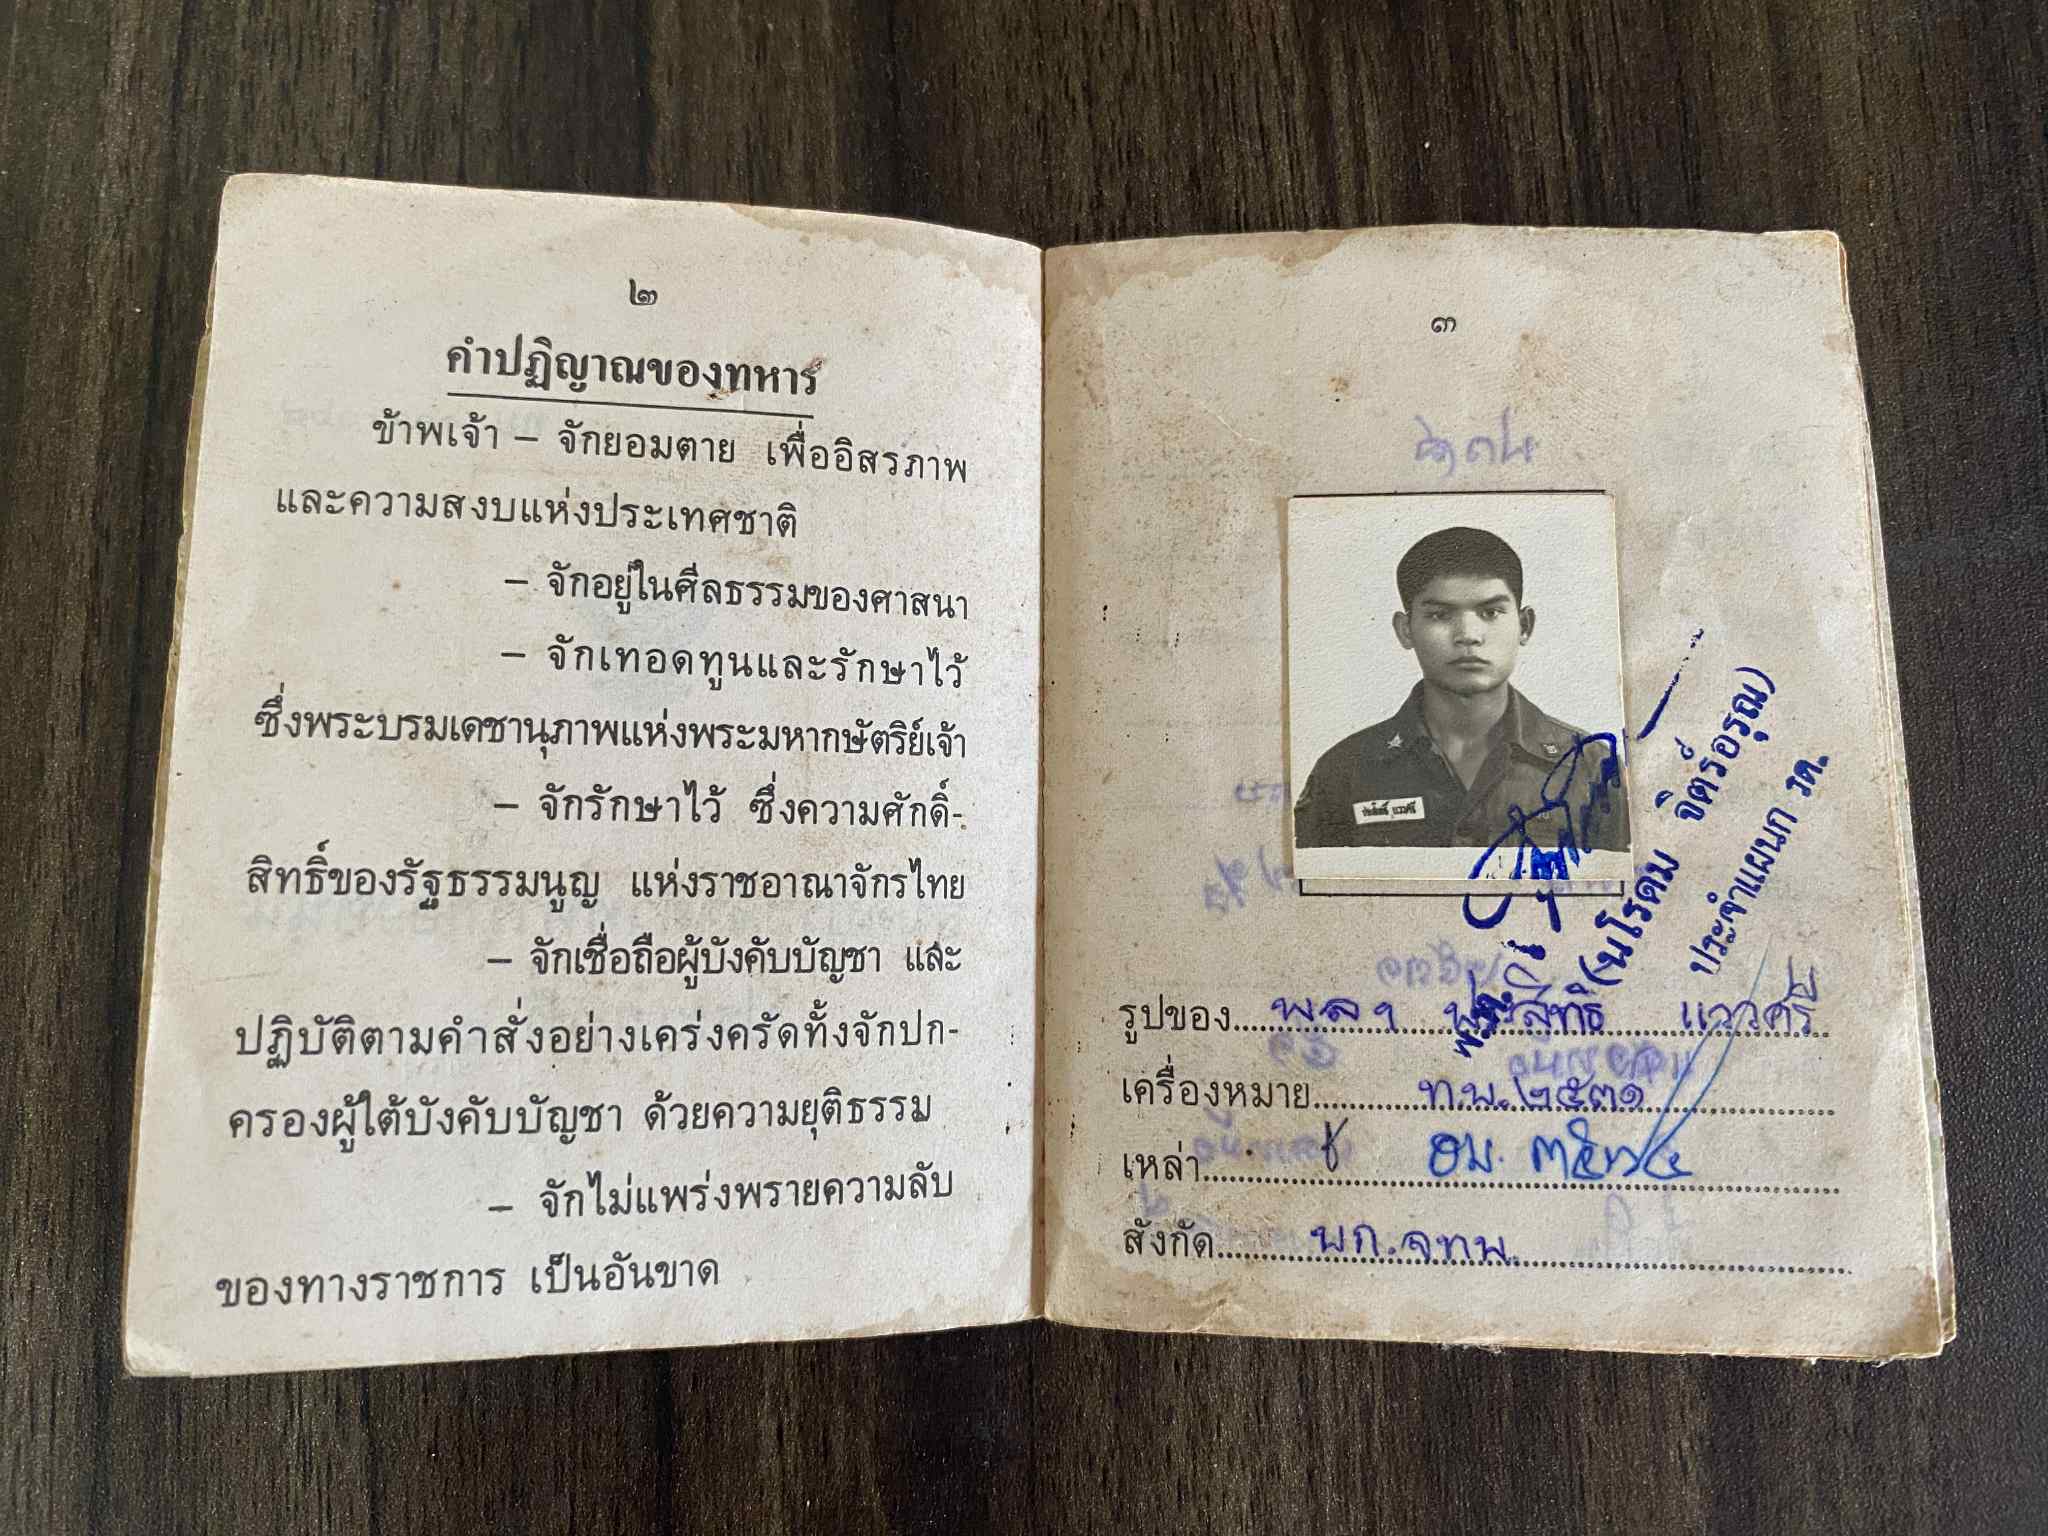 ๒
คำปฏิญาณของทหาร
ข้าพเจ้า – จักยอมตาย เพื่ออิสรภาพ
และความสงบแห่งประเทศชาติ
– จักอยู่ในศีลธรรมของศาสนา
– จักเทอดทูนและรักษาไว้
ซึ่งพระบรมเดชานุภาพแห่งพระมหากษัตริย์เจ้า
– จักรักษาไว้ ซึ่งความศักดิ์-
สิทธิ์ของรัฐธรรมนูญ แห่งราชอาณาจักรไทย
– จักเชื่อถือผู้บังคับบัญชา และ
ปฏิบัติตามคำสั่งอย่างเคร่งครัดทั้งจักปก-
ครองผู้ใต้บังคับบัญชา ด้วยความยุติธรรม
– จักไม่แพร่งพรายความลับ
ของทางราชการ เป็นอันขาด
๓
(นโรดม จิตร์อรุณ)
ประจำแผนก รด.
รูปของ พลฯ ประสิทธิ แววศรี
เครื่องหมาย ท.พ.๒๕๓๑
เหล่า
สังกัด พก.จทพ.